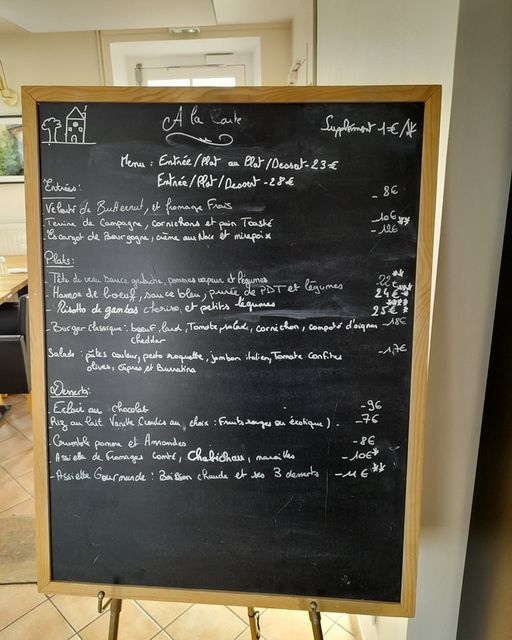 A la Carte
Supplément 1€/*
Menu : Entrée/Plat ou Plat/Dessert - 23€
Entrée/Plat/Dessert - 28€
Entrées:
- Velouté de Butternut, et fromage Frais - 8€
- Terrine de Campagne, cornichons et pain Toasté - 10€
- Escargot de Bourgogne, crème aux Noix et mirepoix - 12€**
Plats:
- Tête de veau sauce gribiche, pommes vapeur et légumes - 22€**
- Hampe de boeuf, sauce bleu, purée de PDT et légumes - 24€
- Risotto de gambas chorizo, et petits légumes - 25€
- Burger classique : boeuf, lard, Tomate, salade, cornichon, compoté d'oignon - 18€
cheddar
- Salade : pâtes couleur, pesto roquette, jambon italien, Tomate Confites - 17€
olives, câpres et Burratina
Desserts:
- Eclair au chocolat - 9€
Riz au lait Vanille (coulis au choix : Fruits rouges ou exotique) - 7€
- Crumble pomme et Amandes - 8€
- Assiette de Fromages comté, Chabichou, maroilles - 10€*
- Assiette Gourmande : Boisson chaude et ses 3 desserts - 11€**